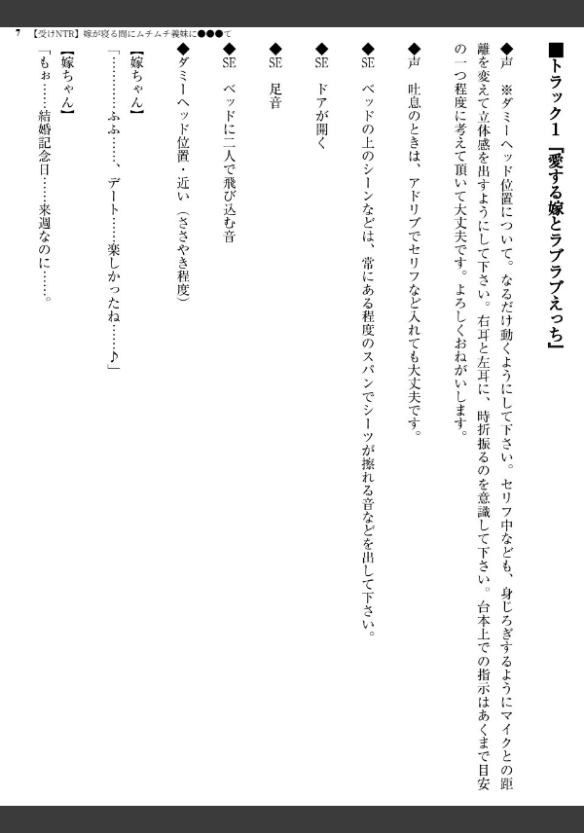 7 【受けNTR】嫁が寝る間にムチムチ義妹に●●●て
■トラック１「愛する嫁とラブラブえっち」
◆声　※ダミーヘッド位置について。なるだけ動くようにして下さい。セリフ中なども、身じろぎするようにマイクとの距
離を変えて立体感を出すようにして下さい。右耳と左耳に、時折振るのを意識して下さい。台本上での指示はあくまで目安
の一つ程度に考えて頂いて大丈夫です。よろしくおねがいします。
◆声　吐息のときは、アドリブでセリフなど入れても大丈夫です。
◆SE　ベッドの上のシーンなどは、常にある程度のスパンでシーツが擦れる音などを出して下さい。
◆SE　ドアが開く
◆SE　足音
◆SE　ベッドに二人で飛び込む音
◆ダミーヘッド位置・近い（ささやき程度）
【嫁ちゃん】
「…………ふふ……、デート……楽しかったね……♪」
【嫁ちゃん】
「もぉ……結婚記念日……来週なのに……。